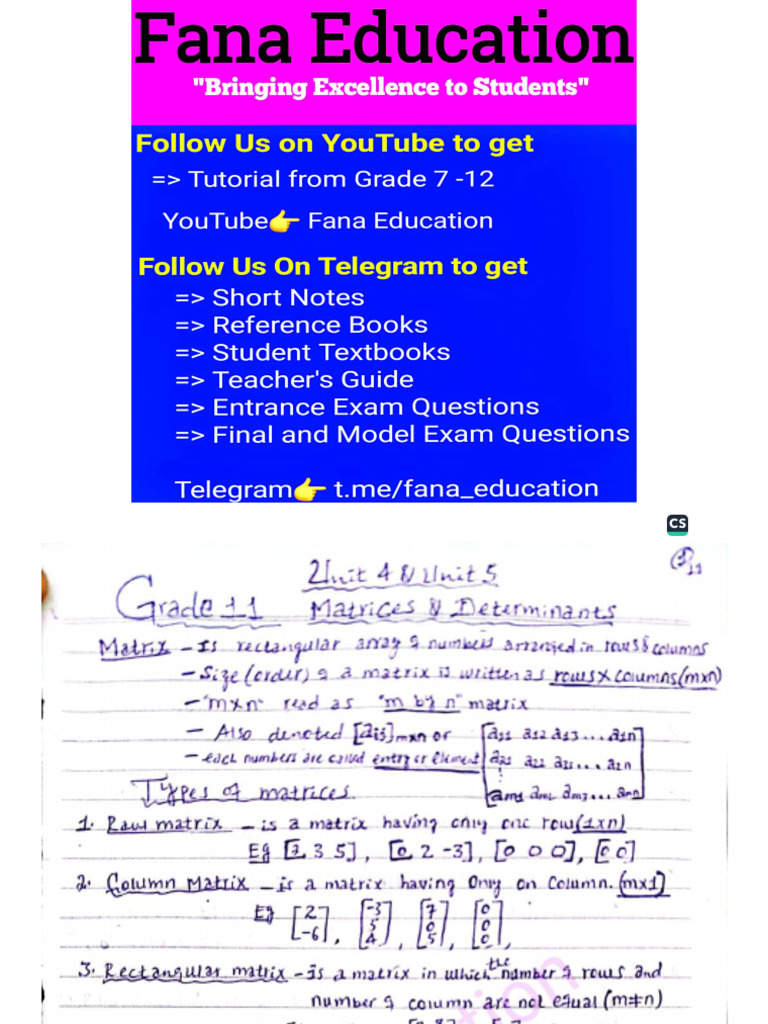 Fana Education
"Bringing Excellence to Students"
Follow Us on YouTube to get
=> Tutorial from Grade 7 -12
YouTube👉 Fana Education
Follow Us On Telegram to get
=> Short Notes
=> Reference Books
=> Student Textbooks
=> Teacher's Guide
=> Entrance Exam Questions
=> Final and Model Exam Questions
Telegram👉 t.me/fana_education
CS
Unit 4 & Unit 5
Grade 11 Matrices & Determinants
Matrix - Is rectangular array of numbers arranged in rows & columns
- Size (order) of a matrix is written as rows x columns (mxn)
- "mxn" read as "m by n" matrix
- Also denoted [aij]mxn or [a11 a12 a13 ... a1n
- each numbers are called entry or Element a21 a22 ... a2n
am1 am2 am3 ... amn]
Types of matrices
1. Raw matrix - is a matrix having only one row (1xn)
Eg [1 3 5], [0 2 -3], [0 0 0], [0 0]
2. Column Matrix - is a matrix having Only on Column. (mx1)
Eg [2 -6], [-3 5 4], [7 0 5], [0 0 0],
3. Rectangular matrix - is a matrix in which the number of rows and
number of column are not equal (m≠n)